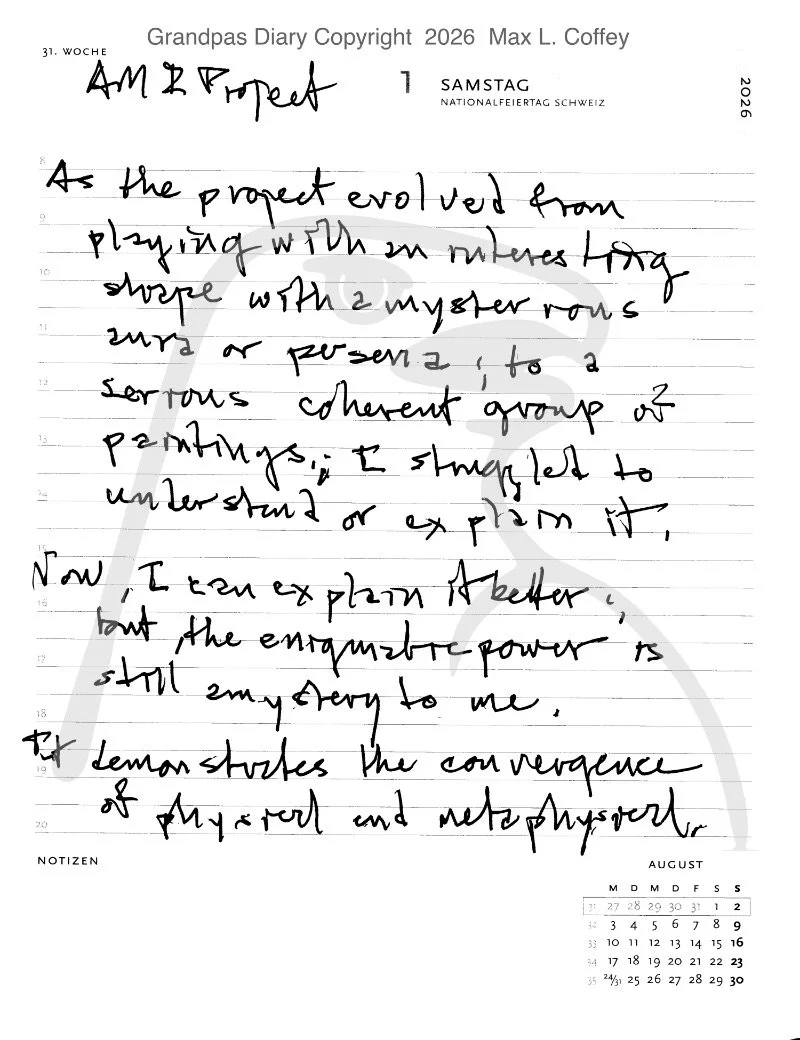 Grandpas Diary Copyright 2026 Max L. Coffey
31. WOCHE
AMI Project
1 SAMSTAG
NATIONALFEIERTAG SCHWEIZ
2026
8
As the project evolved from
9
playing with an interesting
10
shape with a mysterious
11
aura or persona, to a
12
serious coherent group of
13
paintings; I struggled to
14
understand or explain it.
15
Now, I can explain it better,
16
but, the enigmatic power is
17
still a mystery to me.
18
It demonstrates the convergence
19
of physical and metaphysical.
20
NOTIZEN
AUGUST
M D M D F S S
31 27 28 29 30 31 1 2
32 3 4 5 6 7 8 9
33 10 11 12 13 14 15 16
34 17 18 19 20 21 22 23
35 24/31 25 26 27 28 29 30